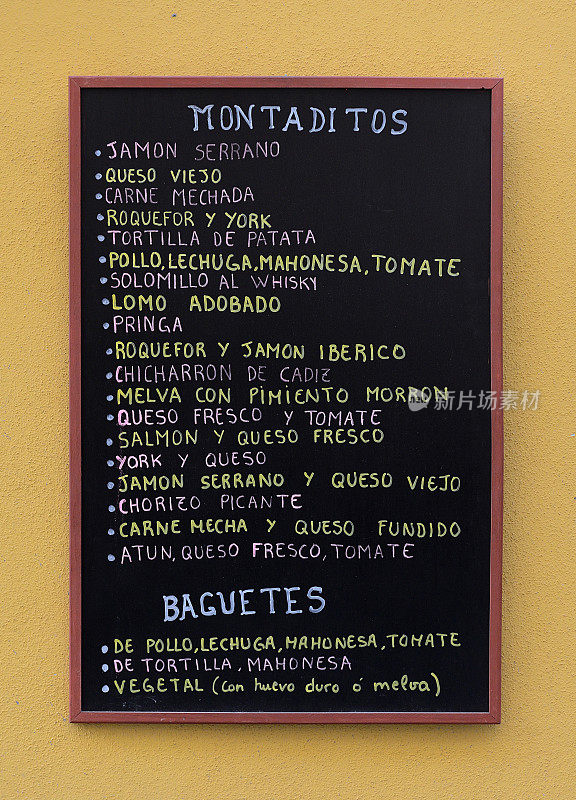 MONTADITOS
• JAMON SERRANO
• QUESO VIEJO
• CARNE MECHADA
• ROQUEFOR Y YORK
• TORTILLA DE PATATA
• POLLO, LECHUGA, MAHONESA, TOMATE
• SOLOMILLO AL WHISKY
• LOMO ADOBADO
• PRINGA
• ROQUEFOR Y JAMON IBERICO
• CHICHARRON DE CADIZ
• MELVA CON PIMIENTO MORRON
• QUESO FRESCO Y TOMATE
• SALMON Y QUESO FRESCO
• YORK Y QUESO
• JAMON SERRANO Y QUESO VIEJO
• CHORIZO PICANTE
• CARNE MECHA Y QUESO FUNDIDO
• ATUN, QUESO FRESCO, TOMATE
BAGUETES
• DE POLLO, LECHUGA, MAHONESA, TOMATE
• DE TORTILLA, MAHONESA
• VEGETAL (con huevo duro ó melva)
新片场素材